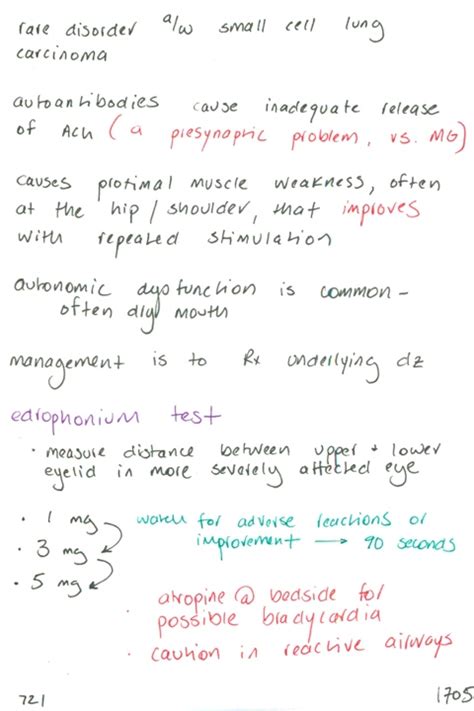 rare disorder a/w small cell lung
carcinoma
autoantibodies cause inadequate release
of ACh (a presynaptic problem, vs. MG)
causes protimal muscle weakness, often
at the hip / shoulder, that improves
with repeated stimulation
autonomic dysfunction is common -
often dry mouth
management is to Rx underlying dz
edrophonium test
· measure distance between upper + lower
eyelid in more severely affected eye
· 1 mg
watch for adverse reactions or
improvement → 90 seconds
· 3 mg
· 5 mg
· atropine @ bedside for
possible bradycardia
· caution in reactive airways
721
1705